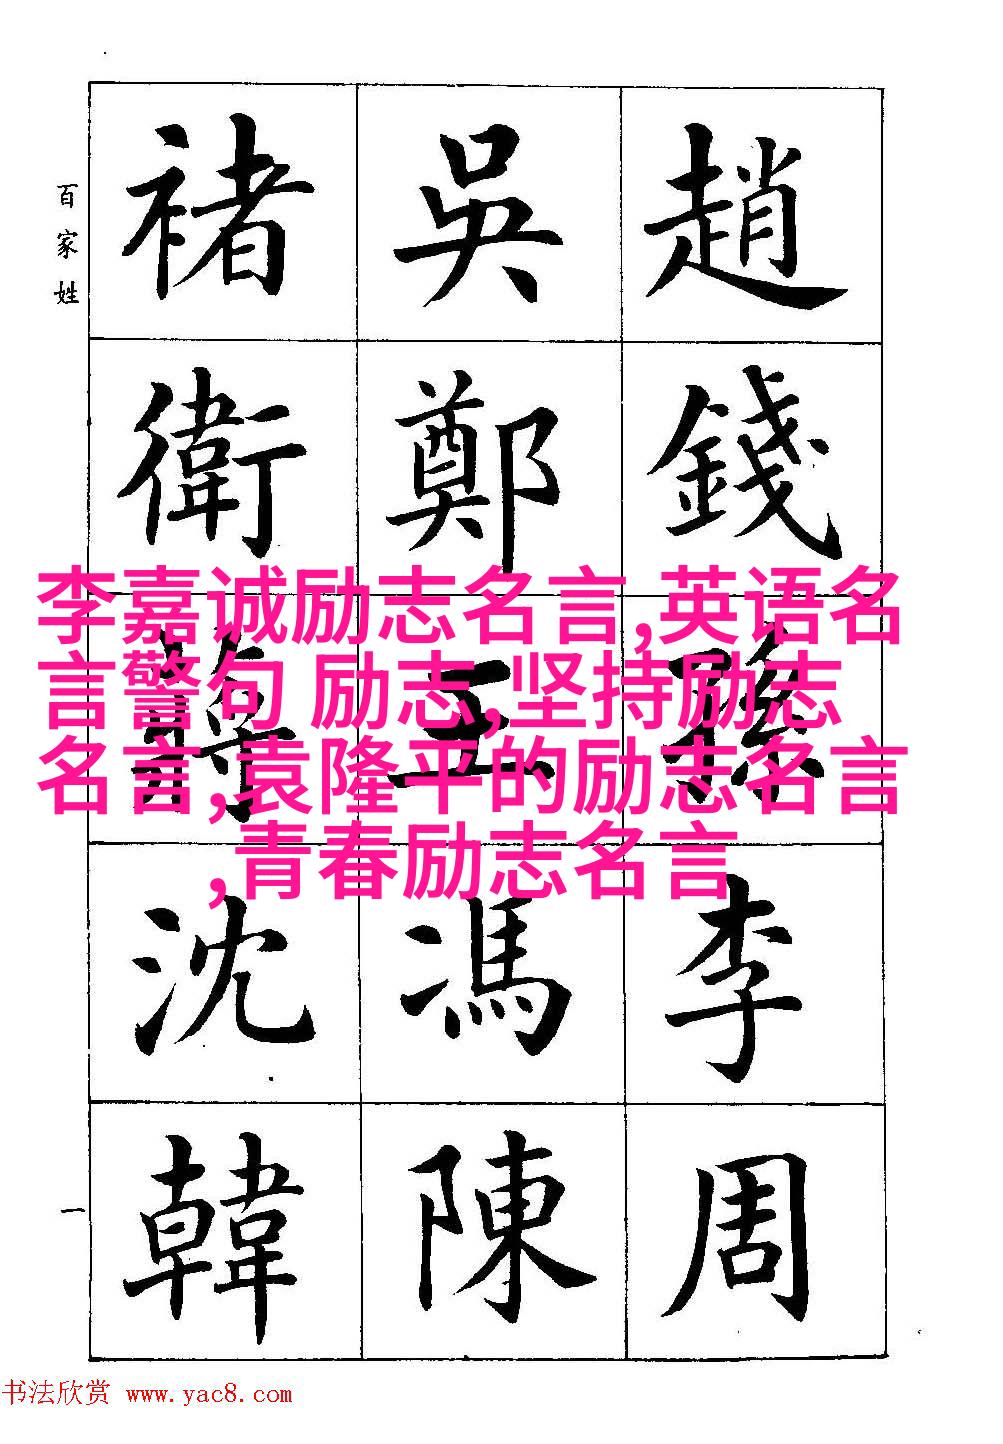 百家姓
趙錢孫李周
吳鄭王馮陳
褚衛蔣沈韓
一
李嘉诚励志名言,英语名
言警句 励志,坚持励志
名言,袁隆平的励志名言
,青春励志名言
书法欣赏 www.yac8.com